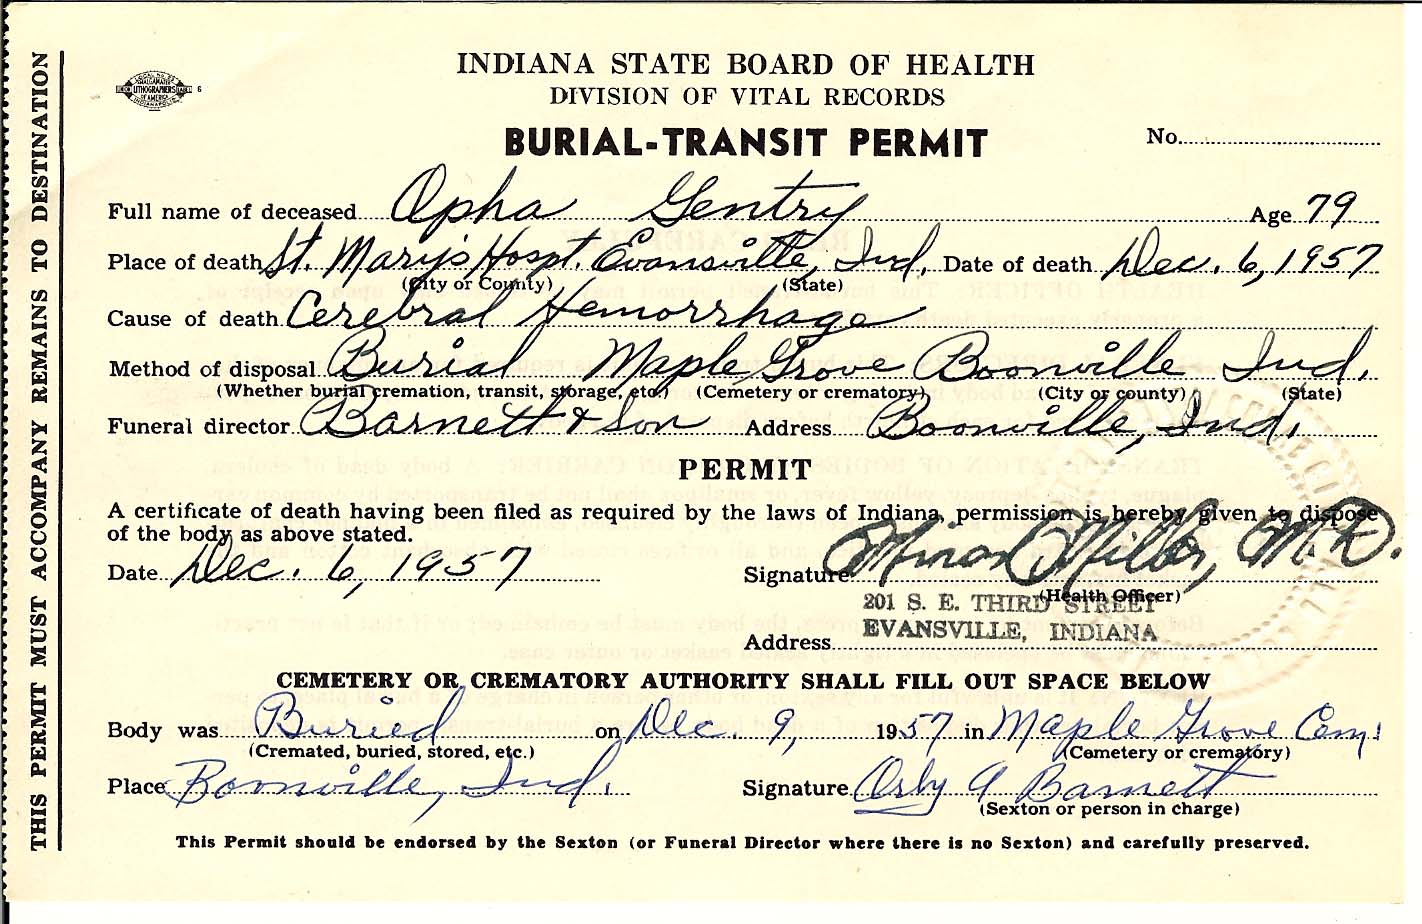 INDIANA STATE BOARD OF HEALTH
DIVISION OF VITAL RECORDS
BURIAL-TRANSIT PERMIT
No.
Full name of deceased Opha Gentry Age 79
Place of death St. Mary's Hospt. Evansville, Ind. Date of death Dec. 6, 1957
(City or County) (State)
Cause of death Cerebral Hemorrhage
Method of disposal Burial Maple Grove Boonville Ind.
(Whether burial cremation, transit, storage, etc.) (Cemetery or crematory) (City or county) (State)
Funeral director Barnett & Son Address Boonville, Ind.
PERMIT
A certificate of death having been filed as required by the laws of Indiana, permission is hereby given to dispose
of the body as above stated.
Date Dec. 6, 1957 Signature Minor Miller, M.D.
(Health Officer)
201 S. E. THIRD STREET
Address EVANSVILLE, INDIANA
CEMETERY OR CREMATORY AUTHORITY SHALL FILL OUT SPACE BELOW
Body was Buried on Dec. 9, 1957 in Maple Grove Cem.
(Cremated, buried, stored, etc.) (Cemetery or crematory)
Place Boonville, Ind. Signature Orby A Barnett
(Sexton or person in charge)
This Permit should be endorsed by the Sexton (or Funeral Director where there is no Sexton) and carefully preserved.
THIS PERMIT MUST ACCOMPANY REMAINS TO DESTINATION